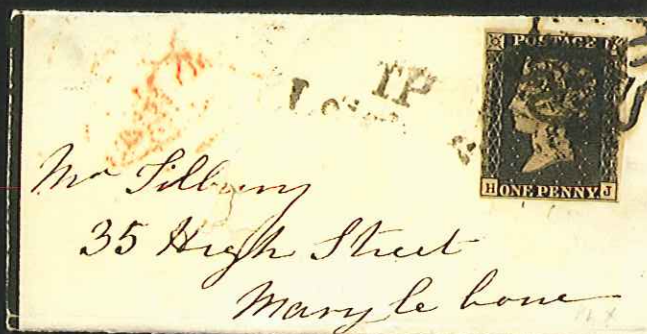 POSTAGE
TP
H ONE PENNY. J
Mr Tilbury
35 High Street
Mary le bone